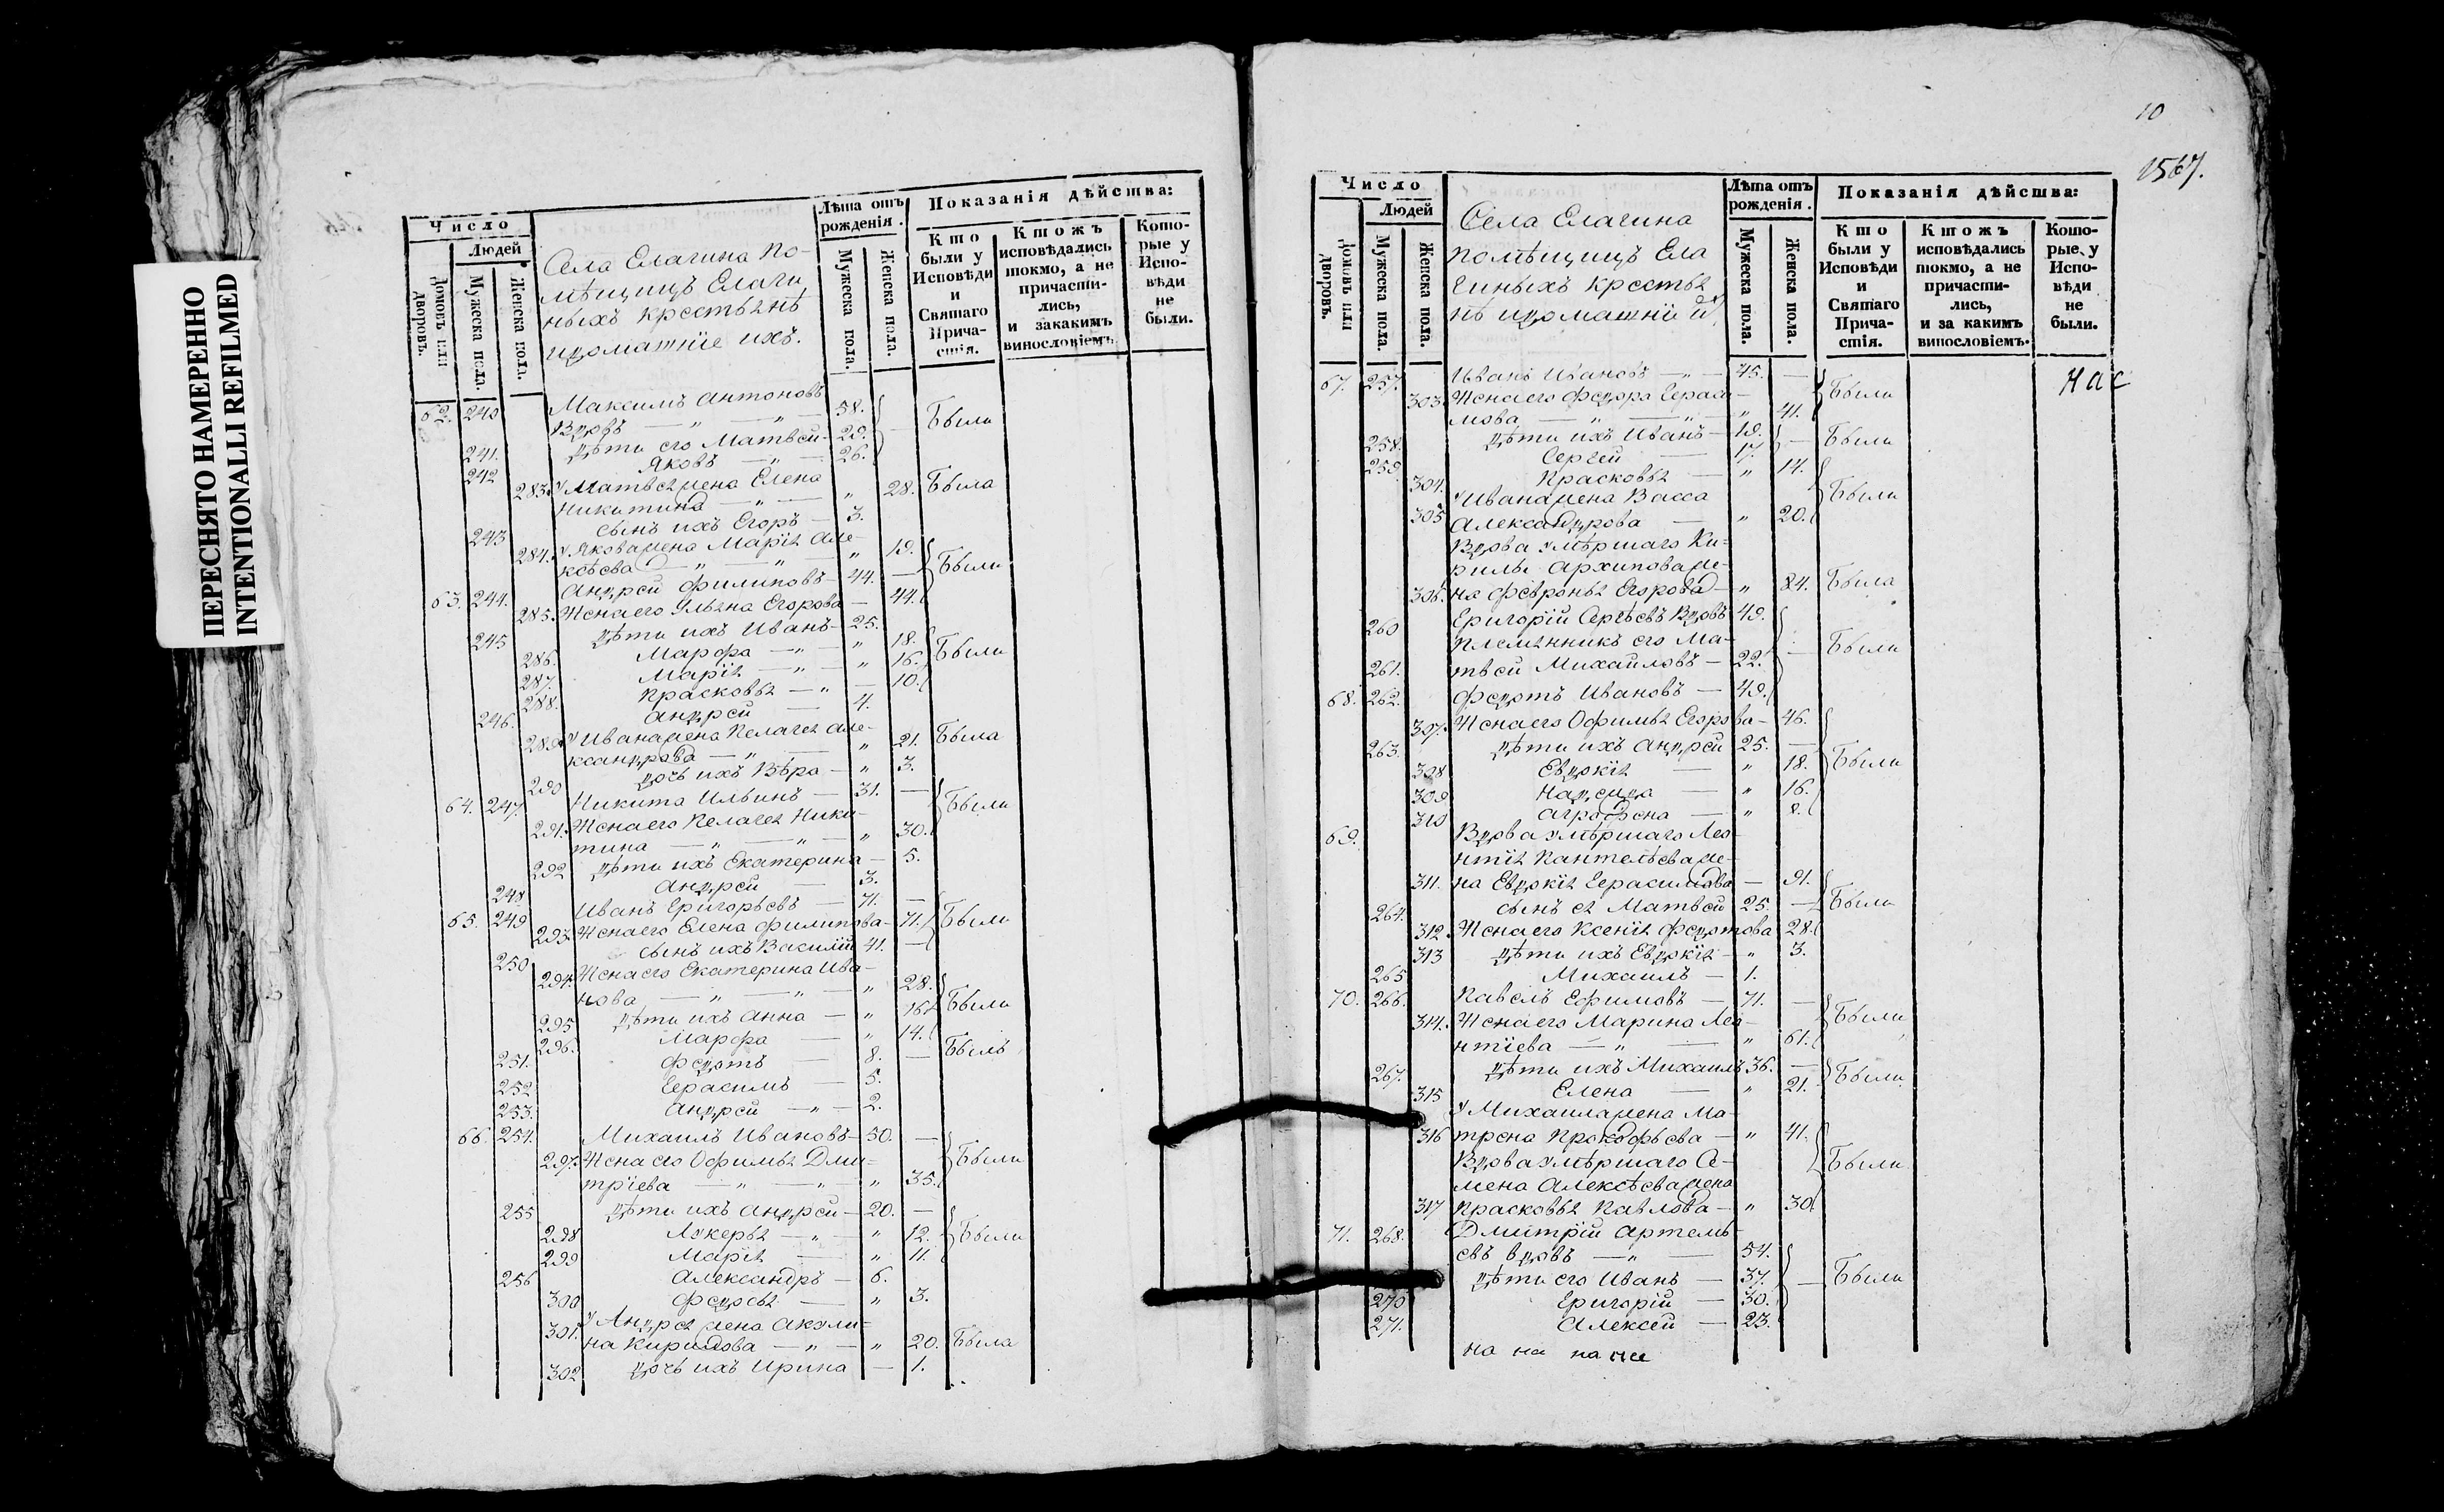 ПЕРЕСНЯТО НАМЕРЕННО
INTENTIONALLI REFILMED
Число
Людей
Домовъ или дворовъ.
Мужеска пола.
Женска пола.
Села Елагина По-
мѣщицъ Елаги
ныхъ крестьянѣ
идоматніе ихъ.
Лѣта отъ рожденія.
Мужеска пола.
Женска пола.
Показанія дѣйства:
Кто были у Исповѣди и Святаго Причастія.
Ктожъ исповѣдались токмо, а не причастились, и закакимъ винословіемъ
Которые у Исповѣди не были.
62. 240 Максимъ Антоновъ
Вдовъ — „ — 58. Были
241. Дѣти его Матвей 29.
242 Яковъ — „ — 26.
283. У Матвея жена Елена
Никитина — „ — „ 28. Была
243 Сынъ ихъ Егоръ — 3.
284. У Якова жена Марія Але-
ксѣева — „ — „ „ 19. Были
63. 244. Андрей Филиповъ — 44. —
285. Жена его Ульяна Егорова — 44.
245 Дѣти ихъ Иванъ — 25.
286. Марфа — „ — „ 18. Были
287. Марія — „ — „ 16.
288. Прасковья — „ — 10.
246. Андрей — 4.
289. У Ивана жена Пелагея Але-
ксандрова — „ — „ 21. Была
290 дочь ихъ Вѣра — „ 3.
64. 247. Никита Ильинъ — 31. — Были
291. Жена его Пелагея Ники-
тина — „ — „ „ 30.
292 Дѣти ихъ Екатерина — 5.
248 Андрей — 3.
65. 249 Иванъ Григорьевъ — 71. —
293. Жена его Елена Филипова — 71. Были
250 сынъ ихъ Василій 41. —
294. Жена его Екатерина Ива-
нова — „ — „ — „ 28.
295 Дѣти ихъ Анна — „ 16. Были
296. Марфа — „ 14.
251. Федотъ — 8. — Былъ
252 Герасимъ — 5.
253. Андрей — „ — 2.
66. 254. Михаилъ Ивановъ — 50. —
297. Жена его Офимья Дми-
тріева — „ — „ — „ 35. Были
255 Дѣти ихъ Андрей — 20. —
298 Лукерья — „ — „ 12. Были
299 Марія — „ 11.
256 Александръ — 6.
300 Федосья — „ 3.
301. У Андрея жена Акули-
на Кирилова — „ — „ 20. Была
302 дочь ихъ Ирина — 1.
10
1567.
Число
Людей
Домовъ или дворовъ.
Мужеска пола.
Женска пола.
Села Елагина
Помѣщицъ Ела
гиныхъ крестья
нѣ идоматніи и
Лѣта отъ рожденія.
Мужеска пола.
Женска пола.
Показанія дѣйства:
Кто были у Исповѣди и Святаго Причастія.
Ктожъ исповѣдались токмо, а не причастились, и за какимъ винословіемъ.
Которые у Исповѣди не были.
67. 257. Иванъ Ивановъ — „ — 45. — Были
303. Жена его Федора Гераси-
мова — „ — „ 41.
258. Дѣти ихъ Иванъ — 19. — Были
259. Сергей — 17.
304. Прасковья — „ 14.
305 У Ивана жена Васса
Александрова — „ 20. Были
Вдова умѣршаго Ки-
рилы Архипова же-
306. на Февронья Егорова — „ 84. Была
260 Григорій Сергѣевъ Вдовъ 49.
Племянникъ его Ма-
261. твей Михайловъ — 22. Были
68. 262. Федотъ Ивановъ — 49.
307. Жена его Офимья Егорова — 46.
263. Дѣти ихъ Андрей 25. —
308 Евдокія — „ 18. Были
309 Надежда — „ 16.
310 Аграфена — „ 8.
69. Вдова умѣршаго Лео-
нтія Пантелѣева же-
311. на Евдокія Герасимова — 91.
264. сынъ ея Матвей 25. — Были
312. Жена его Ксенія Федотова 28.
313 Дѣти ихъ Евдокія — „ 3.
265 Михаилъ — 1.
70. 266. Павелъ Ефимовъ — 71. —
314. Жена его Марина Лео-
нтіева — „ — „ 61. Были
267. Дѣти ихъ Михаилъ 36. —
315 Елена — „ 21. Были
У Михаила жена Ма-
316 трена Прокофьева — „ 41.
Вдова умѣршаго Се-
мена Алексѣева жена Были
317 Прасковья Павлова — „ 30.
71. 268. Дмитрій Артемь-
евъ вдовъ — „ — 54.
Дѣти его Иванъ — 37. — Были
270 Григорій — 30.
271. Алексей — 23.